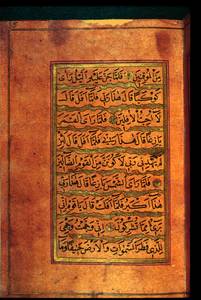 مِنَ الْمُوقِنِينَ فَلَمَّا جَنَّ عَلَيْهِ الَّيْلُ رَأَى
كَوْكَبًا قَالَ هَذَا رَبِّي فَلَمَّا أَفَلَ قَالَ
لَا أُحِبُّ الْآفِلِينَ فَلَمَّا رَأَى الْقَمَرَ
بَازِغًا قَالَ هَذَا رَبِّي فَلَمَّا أَفَلَ قَالَ لَئِنْ
لَمْ يَهْدِنِي رَبِّي لَأَكُونَنَّ مِنَ الْقَوْمِ الضَّالِّينَ
فَلَمَّا رَأَى الشَّمْسَ بَازِغَةً قَالَ هَذَا رَبِّي
هَذَا أَكْبَرُ فَلَمَّا أَفَلَتْ قَالَ يَا قَوْمِ إِنِّي
بَرِيءٌ مِمَّا تُشْرِكُونَ إِنِّي وَجَّهْتُ وَجْهِيَ
لِلَّذِي فَطَرَ السَّمَوَاتِ وَالْأَرْضَ حَنِيفًا وَمَا